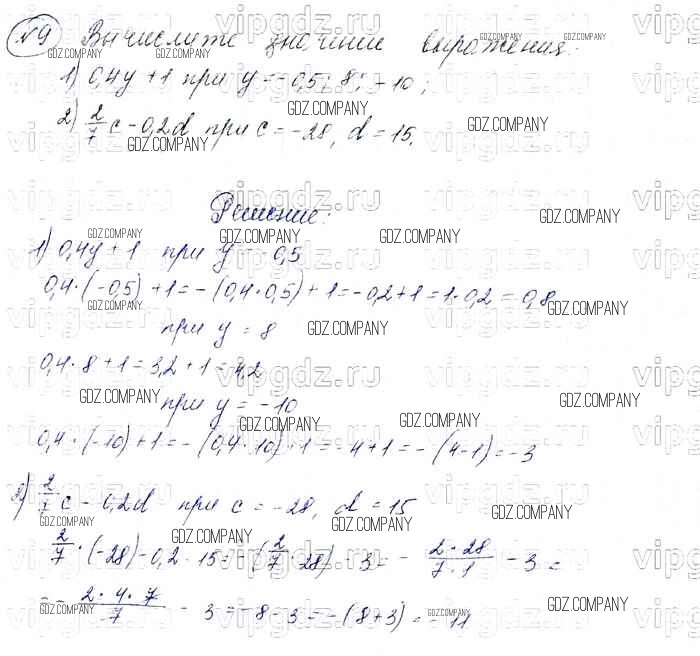 №9 Вычислите значение выражения:
1) 0,4y + 1 при y = -0,5; 8; -10;
2) 2/7 c - 0,2d при c = -28, d = 15.
Решение:
1) 0,4y + 1 при y = -0,5
0,4·(-0,5) + 1 = -(0,4·0,5) + 1 = -0,2 + 1 = 1·0,2 = 0,8
при y = 8
0,4·8 + 1 = 3,2 + 1 = 4,2
при y = -10
0,4·(-10) + 1 = -(0,4·10) + 1 = -4 + 1 = -(4-1) = -3
2) 2/7 c - 0,2d при c = -28, d = 15
2/7·(-28) - 0,2·15 = -(2/7·28) - 3 = - 2·28/7·1 - 3 =
= - 2·4·7/7 - 3 = -8 - 3 = -(8+3) = -11
vipgdz.ru
GDZ.COMPANY